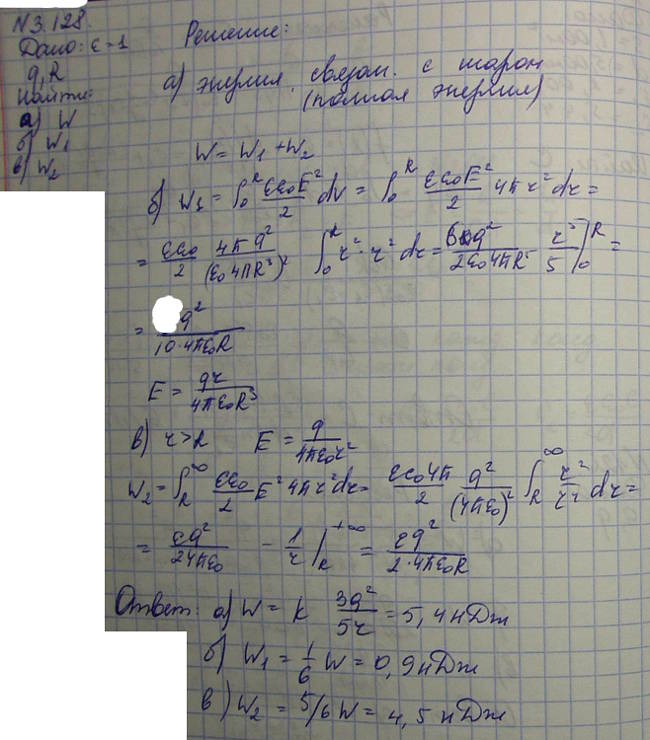 N 3.128.
Дано: ε=1
q, R
Найти:
а) W
б) W₁
в) W₂
Решение:
а) энергия, связан. с шаром
(полная энергия)
W = W₁ + W₂
б) W₁ = ∫₀ᴿ εε₀E²/2 dV = ∫₀ᴿ εε₀E²/2 4πr²dr =
= εε₀/2 4πq²/(ε₀4πR³)² ∫₀ᴿ r²·r² dr = q²/2ε₀4πR r⁵/5 |₀ᴿ =
= q²/10·4πε₀R
E = qr/4πε₀R³
в) r>R E = q/4πε₀r²
W₂ = ∫_R^∞ εε₀/2 E² 4πr²dr = εε₀4π/2 q²/(4πε₀)² ∫_R^∞ r²/r⁴ dr =
= εq²/24πε₀ - 1/r |_R^+∞ = εq²/2·4πε₀R
Ответ: а) W = k 3q²/5r = 5,4 нДж
б) W₁ = 1/6 W = 0,9 нДж
в) W₂ = 5/6 W = 4,5 нДж